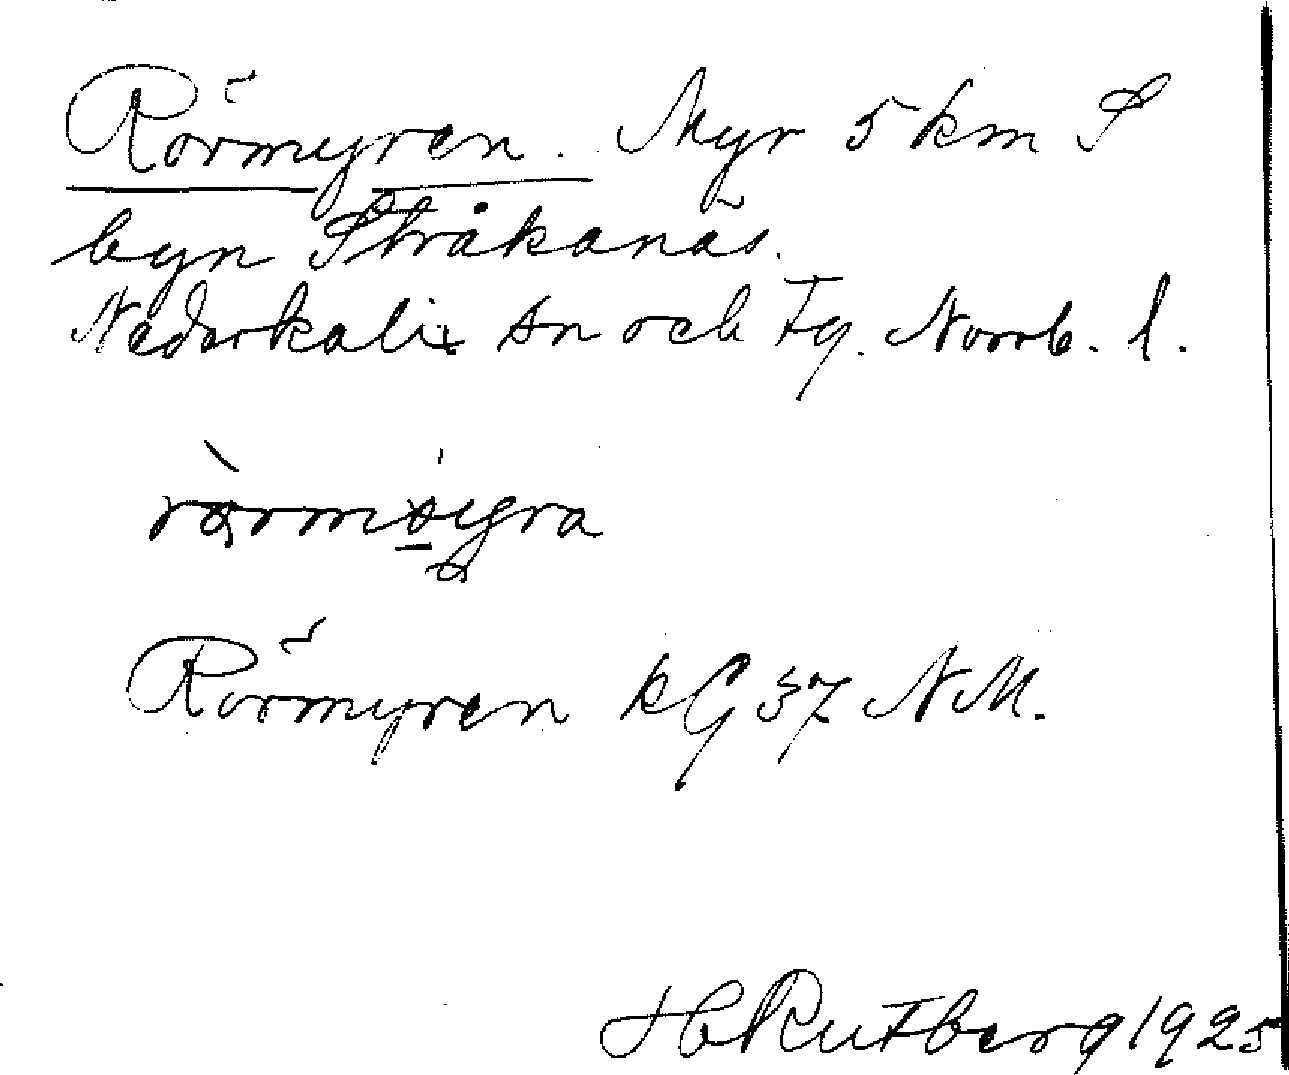 Rörmyren. Myr 5 km S
byn Stråkanäs.
Nederkalix sn och Tg. Norrb. l.
Rörmyren kG 37 NM.
H Rutberg 1925